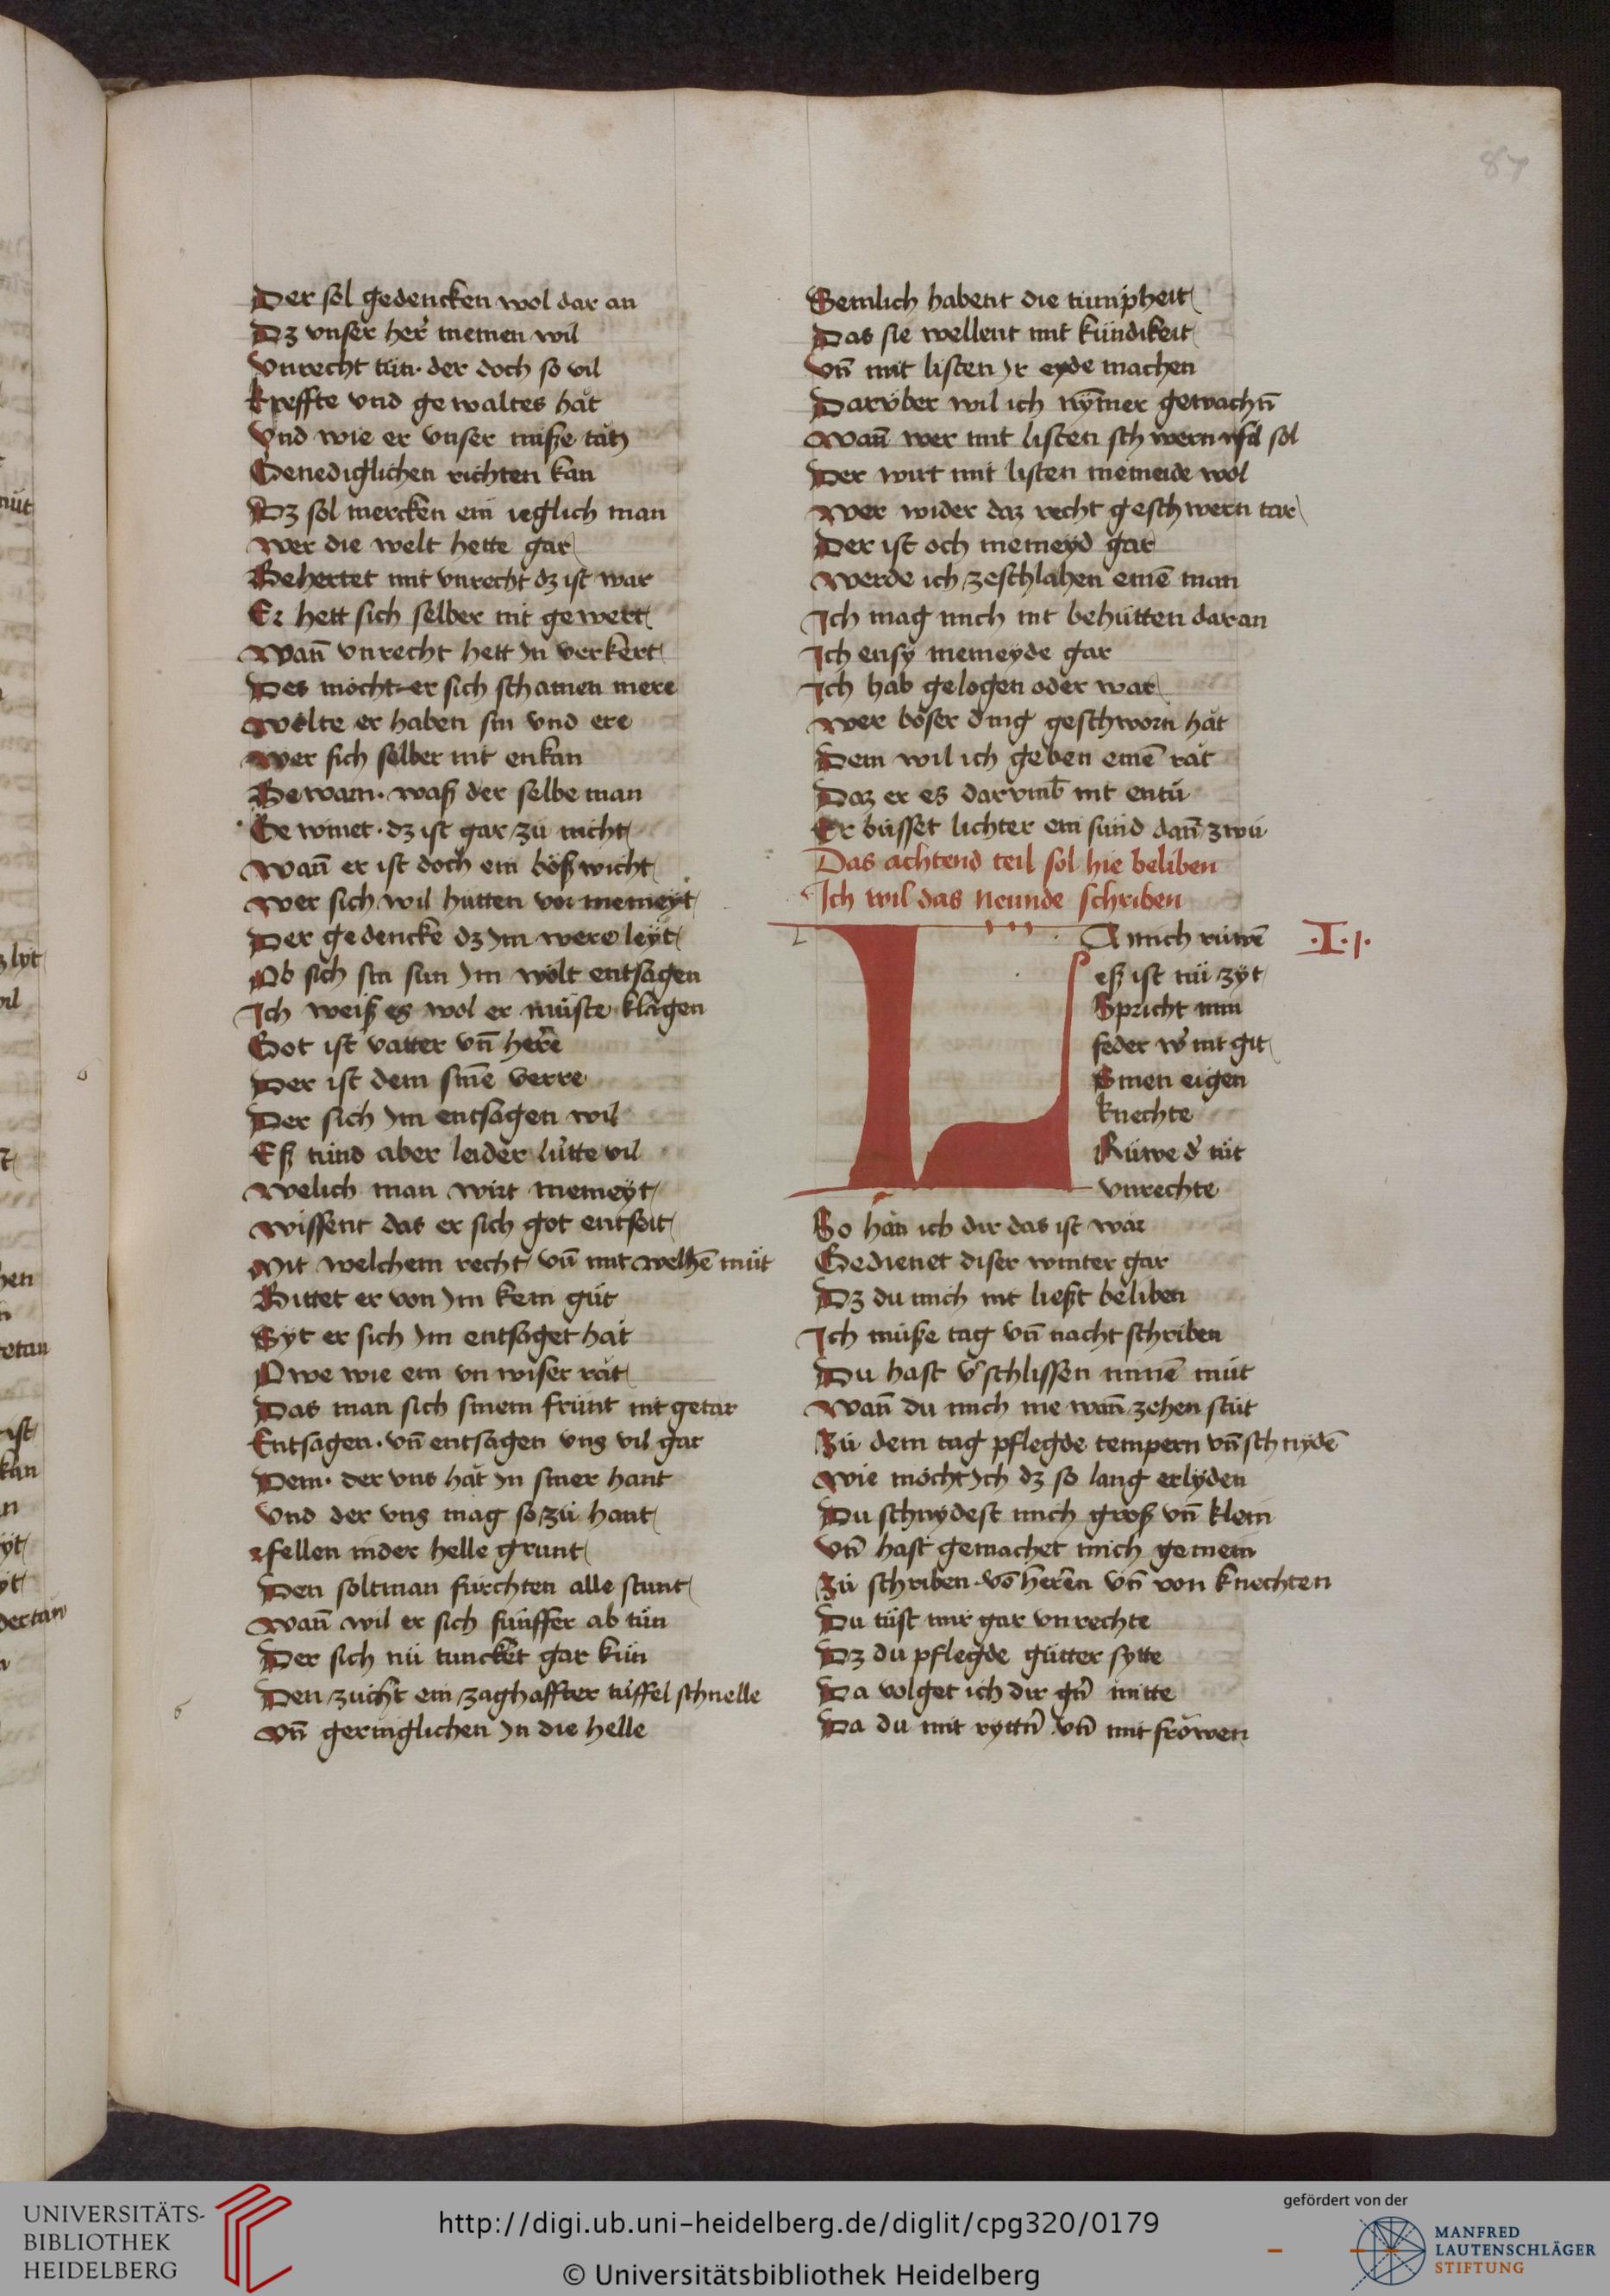 87
Der sol gedencken wol dar an
Dz vnser her̄ meinen wil
Vnrecht tůn· der doch so vil
kreffte vnd gewaltes hat
Vnd wie er vnser miße tat
Genediglichen richten kan
Dz sol mercken ein ieglich man
Wer die welt hette gar
Behertet mit vnrecht dz ist war
Er hett sich selber nit gewert
Wan̄ vnrecht hett In verkert
Des möcht er sich schamen mere
Wölte er haben sin vnd ere
Wer sich selber nit enkan
Bewarn· waß der selbe man
Gewinet· dz ist gar zů nicht
Wan̄ er ist doch ein bößwicht
Wer sich wil hütten vor meineyt
Der gedencke dz Im were leyt
Ob sich sin sun Im wölt entsagen
Ich weiß es wol er müste klagen
Got ist vatter vn̄ her̄e
Der ist dem sine verre
Der sich Im entsagen wil
Eß tünd aber leider lütte vil
Welich man wirt meineyt
Wissent das er sich got entseit
Mit welchem recht vn̄ mit welhē můt
Bittet er von Im kein gůt
Syt er sich Im entsaget hat
Owe wie ein vnwiser rat
Das man sich sinem frünt nit getar
Entsagen· vn̄ entsagen vns vil gar
Dem· der vns hat In siner hant
Vnd der vns mag so zů hant
fellen in der helle grunt
Den solt man fürchten alle stunt
Wan̄ wil er sich sünffer ab tůn
Der sich nů tuncket gar kůn
Den zücht ein zaghaffter tüffel schnelle
Vn̄ geringlichen In die helle
Semlich habent die tumpheit
Das sie wellent mit kündikeit
Vn̄ mit listen Ir eyde machen
Darüber wil ich nym̄er gewachn̄
Wan̄ wer mit listen schwern sol
Der wirt mit listen meineide wol
Wer wider daz recht geschwern tar
Der ist och meineyd gar
Werde ich zeschlahen einē man
Ich mag mich nit behütten daran
Ich ensy meineyde gar
Ich hab gelogen oder war
Wer böser ding geschworn hat
Dem wil ich geben einē rat
Daz er es darvmb nit entů
Er büsset lichter ein sünd dan̄ zwů
Das achtend teil sol hie beliben
Ich wil das Neunde schriben
LA mich růwē ·I·j·
eß ist nů zyt
Spricht min
feder w̄ nit git
Sinen eigen
knechte
Růwe d̄ tůt
vnrechte
So han ich dir das ist war
Gedienet diser winter gar
Dz du mich nit ließt beliben
Ich müße tag vn̄ nacht schriben
Du hast v̄schlissen minē můt
Wan̄ du mich me wan̄ zehen stůt
Zů dem tag pflegde tempern vn̄ schnydē
Wie möcht Ich dz so lang erlyden
Du schnydest mich groß vn̄ klein
Vn̄ hast gemachet mich gemein
Zů schriben· vō her̄en vn̄ von knechten
Du tůst mir gar vnrechte
Dz du pflegde gůtter sytte
Da volget ich dir gn̄ mitte
Da du mit ryttn̄ vn̄ mit fröwen
UNIVERSITÄTS-
BIBLIOTHEK
HEIDELBERG
http://digi.ub.uni-heidelberg.de/diglit/cpg320/0179
© Universitätsbibliothek Heidelberg
gefördert von der
MANFRED
LAUTENSCHLÄGER
STIFTUNG